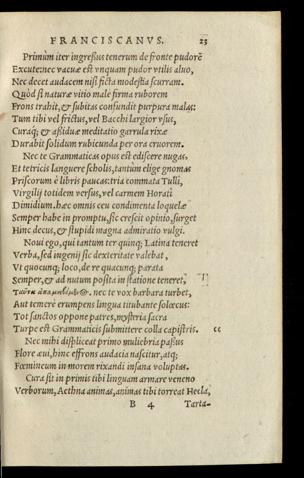 FRANCISCANVS. 23
Primùm iter ingressus tenerum de fronte pudorē
Excute: nec vacuæ est vnquam pudor vtilis aluo,
Nec decet audacem nisi ficta modestia scurram.
Quòd si naturæ vitio male firma ruborem
Frons trahit, & subitas confundit purpura malas:
Tum tibi vel frictus, vel Bacchi largior vsus,
Curaq; & aßiduæ meditatio garrula rixæ
Durabit solidum rubicunda per ora cruorem.
Nec te Grammaticas opus est ediscere nugas,
Et tetricis languere scholis, tantùm elige gnomas
Priscorum è libris paucas: tria commata Tulli,
Virgilij totidem versus, vel carmem Horatî
Dimidium. hæc omnis ceu condimenta loquelæ
Semper habe in promptu, sic crescit opinio, surget
Hinc decus, & stupidi magna admiratio vulgi.
Noui ego, qui tantum ter quinq; Latina teneret
Verba, sed ingenij sic dexteritate valebat,
Vt quocunq; loco, de re quacunq; parata
Semper, & ad nutum posita in statione teneret,
nec te vox barbara turbet,
Aut temerè erumpens lingua titubante solœcus:
Tot sanctos oppone patres, mysteria sacra
Turpe est Grammaticis submittere colla capistris. cc
Nec mihi displiceat primo muliebria passus
Flore æui, hinc effrons audacia nascitur, atq;
Fœmineum in morem rixandi insana voluptas.
Cura sit in primis tibi linguam armare veneno
Verborum, Aethna animas, animas tibi torreat Hecla,
B 4 Tarta-